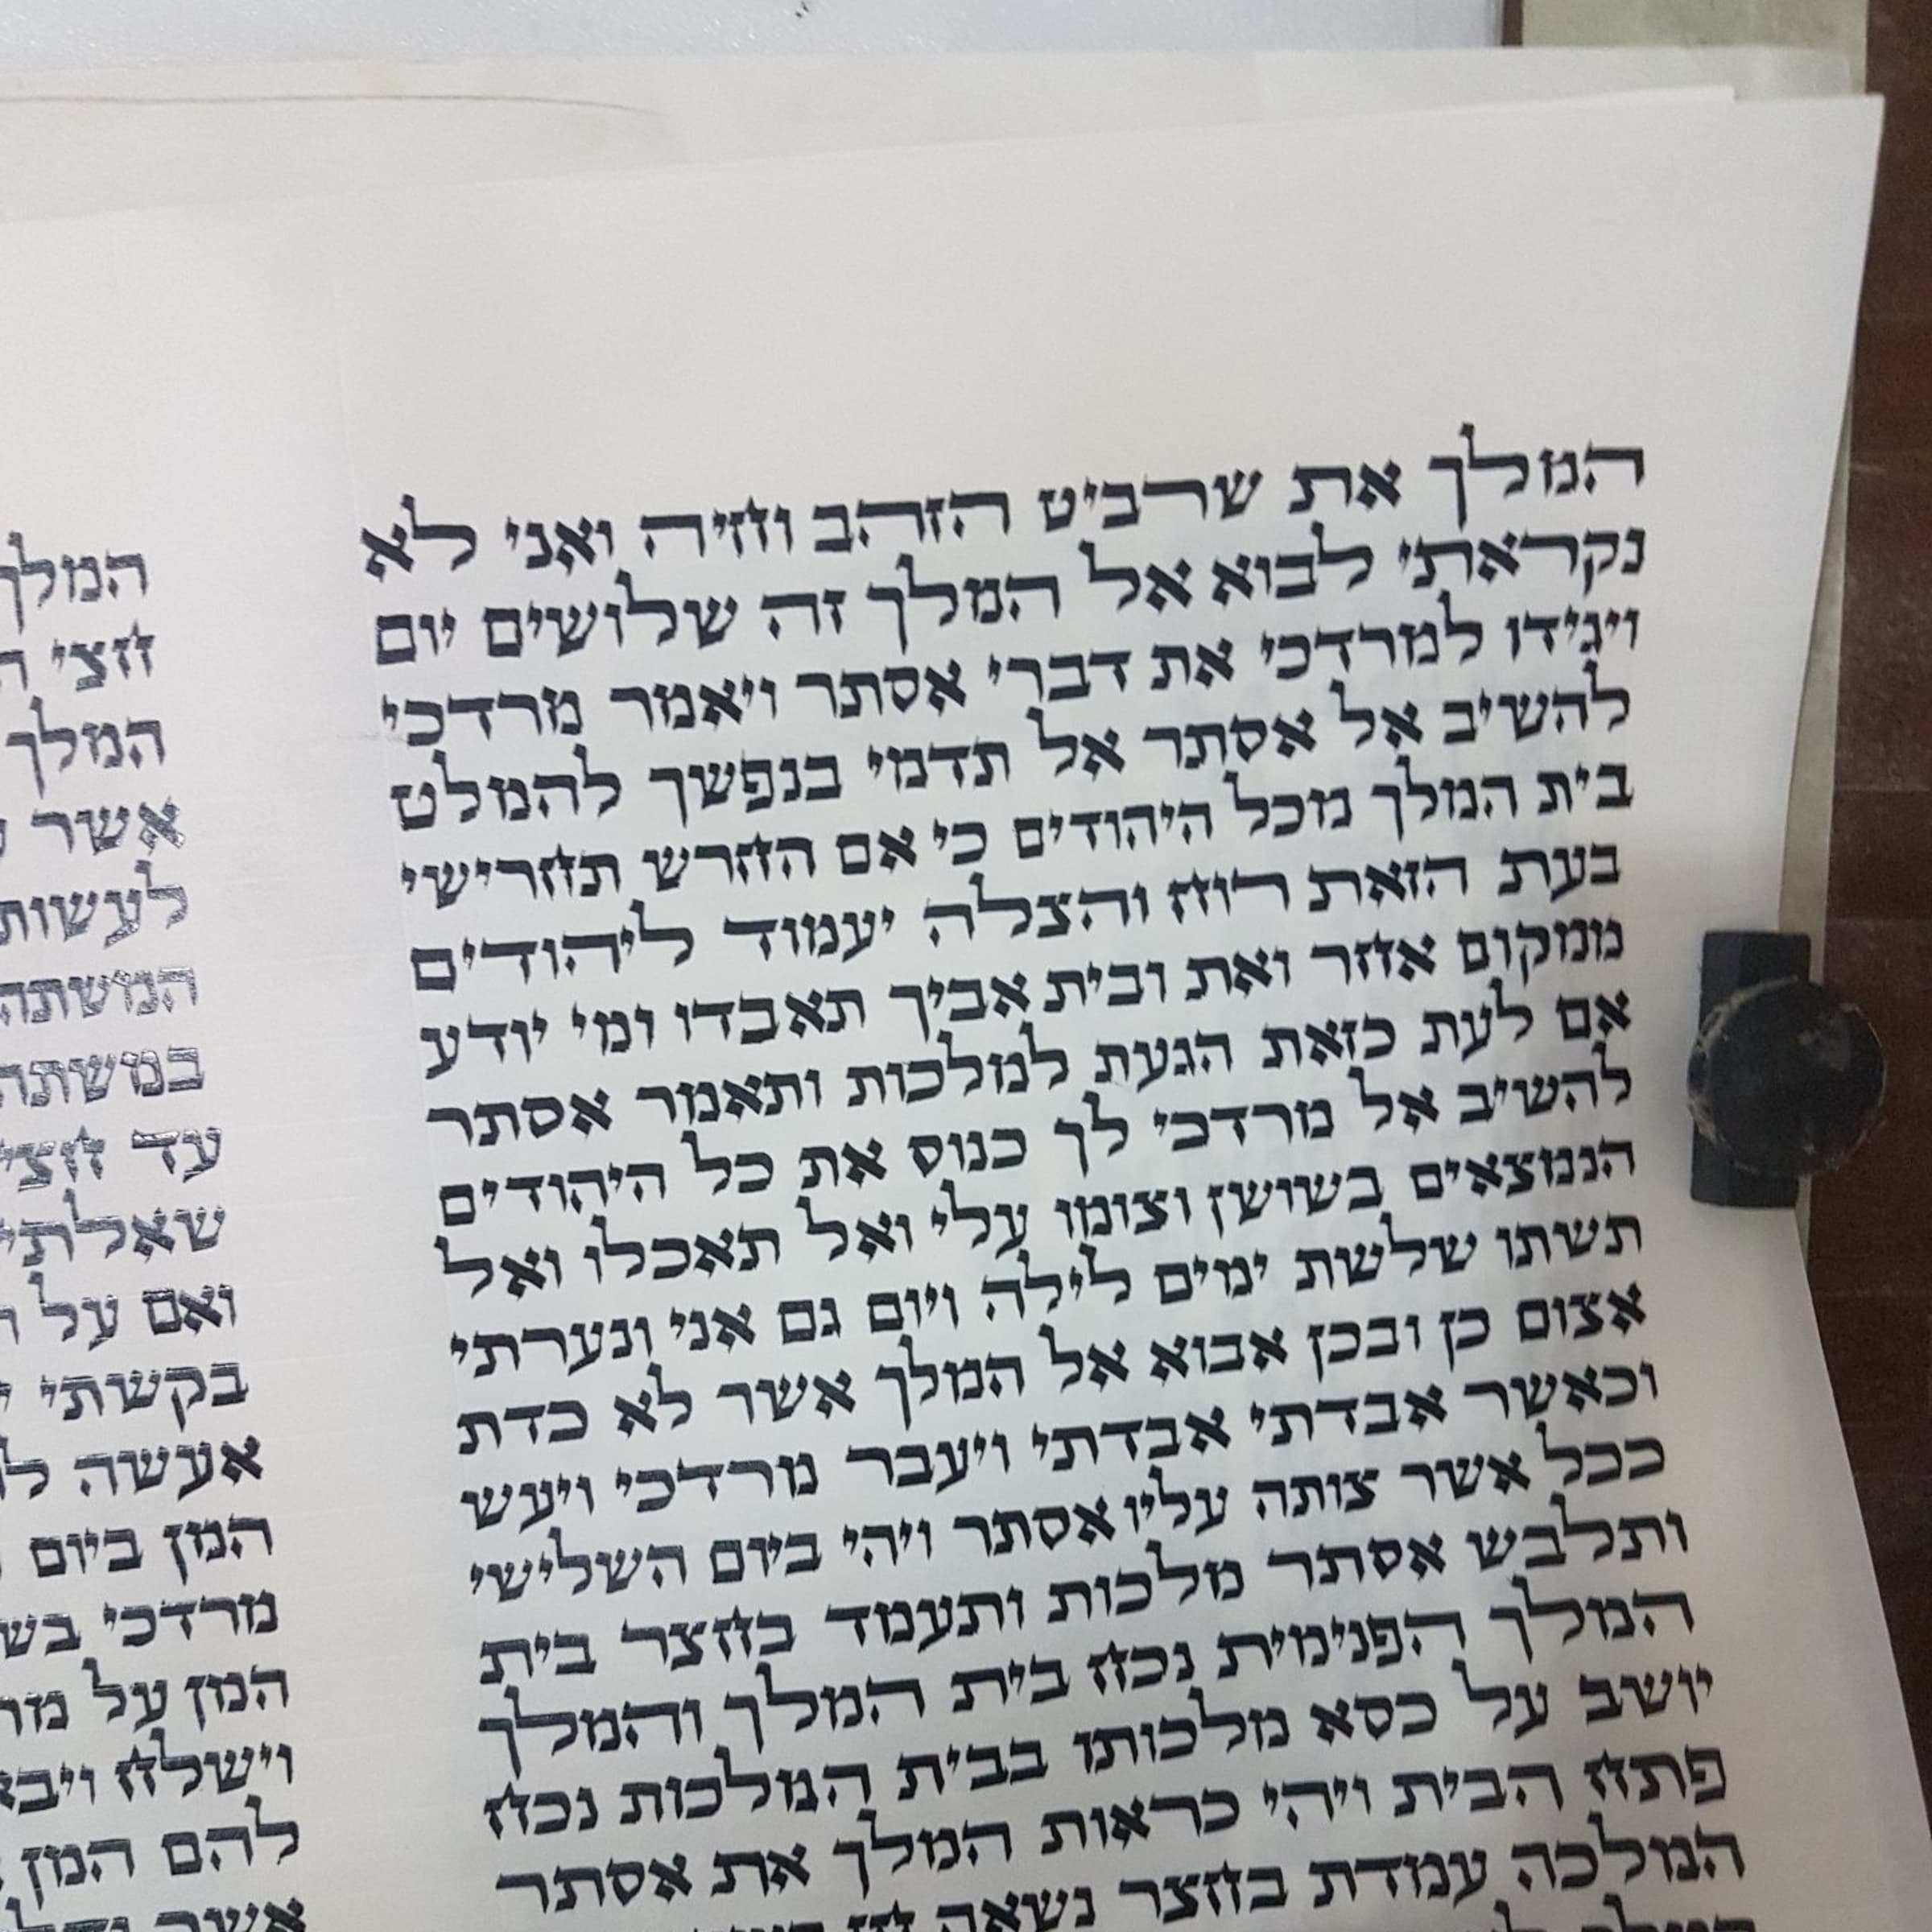 המלך את שרביט הזהב וחיה ואני לא
נקראתי לבוא אל המלך זה שלושים יום
ויגידו למרדכי את דברי אסתר ויאמר מרדכי
להשיב אל אסתר אל תדמי בנפשך להמלט
בית המלך מכל היהודים כי אם החרש תחרישי
בעת הזאת רוח והצלה יעמוד ליהודים
ממקום אחר ואת ובית אביך תאבדו ומי יודע
אם לעת כזאת הגעת למלכות ותאמר אסתר
להשיב אל מרדכי לך כנוס את כל היהודים
הנמצאים בשושן וצומו עלי ואל תאכלו ואל
תשתו שלשת ימים לילה ויום גם אני ונערתי
אצום כן ובכן אבוא אל המלך אשר לא כדת
וכאשר אבדתי אבדתי ויעבר מרדכי ויעש
ככל אשר צותה עליו אסתר ויהי ביום השלישי
ותלבש אסתר מלכות ותעמד בחצר בית
המלך הפנימית נכח בית המלך והמלך
יושב על כסא מלכותו בבית המלכות נכח
פתח הבית ויהי כראות המלך את אסתר
המלכה עמדת בחצר נשאה חן
המלך
חצי
המלך
אשר
לעשות
המשתה
במשתה
עד חצי
שאלתי
ואם על
בקשתי
אעשה
המן ביום
מרדכי
המן על
וישלח
להם המן
אשר